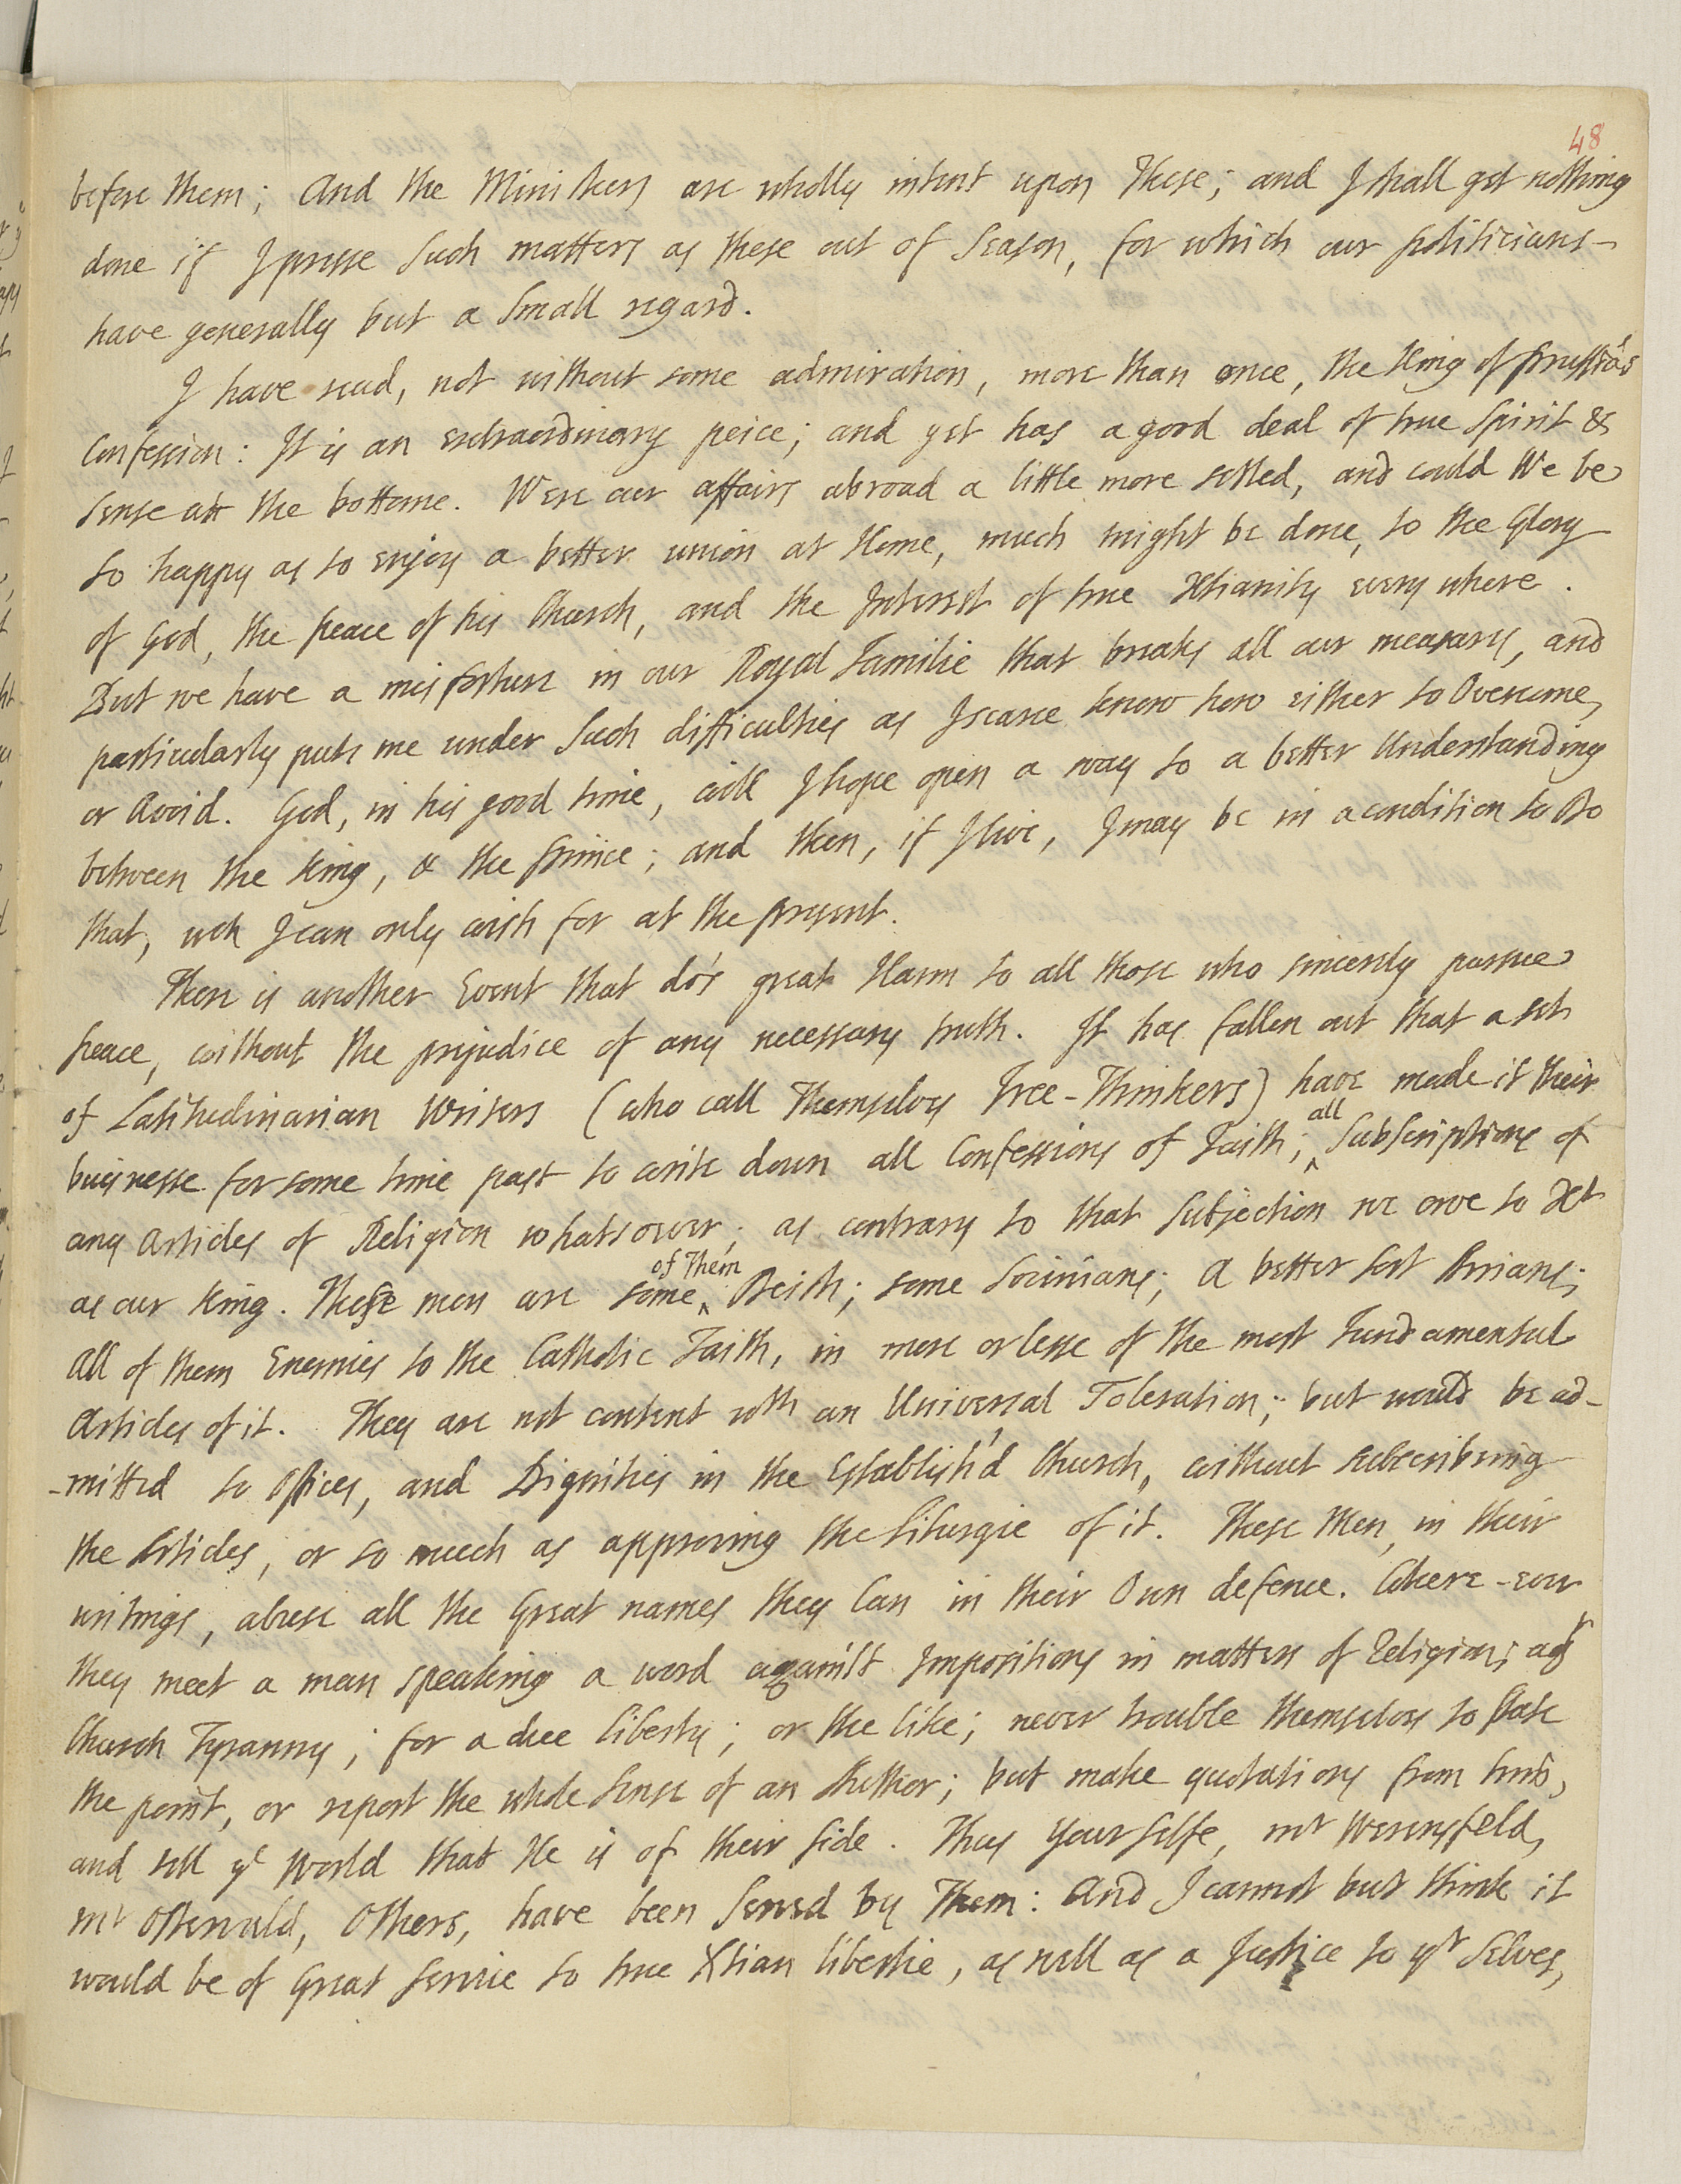 48
before them; And the Ministers are wholly intent upon These; and I shall get nothing
done if I presse such matters as these out of Season, for which our politicians
have generally but a small regard.
I have read, not without some admiration, more than once, the King of Prussia's
Confession: It is an extraordinary peice; and yet has a good deal of true Spirit &
sense att the bottome. Were our affairs abroad a little more setled, and could We be
so happy as to enjoy a better union at Home, much might be done, to the Glory
of God, the peace of his Church, and the Interest of true Xtianity every where.
But we have a misfortune in our Royal Familie that breaks all our measurs, and
particularly puts me under such difficulties as I scarce know how either to Overcome,
or Avoid. God, in his good time, will I hope open a way to a better Understanding
between the King, & the Prince; and then, if I live, I may be in a condition to Do
that, wch I can only wish for at the present.
There is another Event that do's great Harm to all those who sincerely pursue
peace, without the prejudice of any necessary truth. It has fallen out that a set
of Latitudinarian Writers (who call Themselves Free-Thinkers) have made it their
buisnesse for some time past to write down all Confessions of Faith; all Subscriptions of
any Articles of Religion whatsoever; as contrary to that Subjection we owe to Xt
as our King. These men are some of Them Deists; some Socinians; A better sort Arrians;
All of them Enemies to the Catholic Faith, in more or lesse of the most Fundamental
Articles of it. They are not content wth an Universal Toleration; but would be ad-
-mitted to Offices, and Dignities in the Establish'd Church, without subscribeing
the Articles, or so much as approving the Liturgie of it. These Men, in their
writings, abuse all the Great names they Can in their Own defence. Where-ever
they meet a man speaking a word against Impositions in matters of Religion; agt
Church Tyranny; for a due liberty; or the like; never trouble themselves to state
the point, or report the whole sense of an Author; but make quotations from him,
and tell ye World that He is of their side. Thus Your selfe, mr Werensfeld,
mr Ostervald, Others, have been served by Them: And I cannot but think it
would be of Great service to true Xtian libertie, as well as a Justice to yr selves,